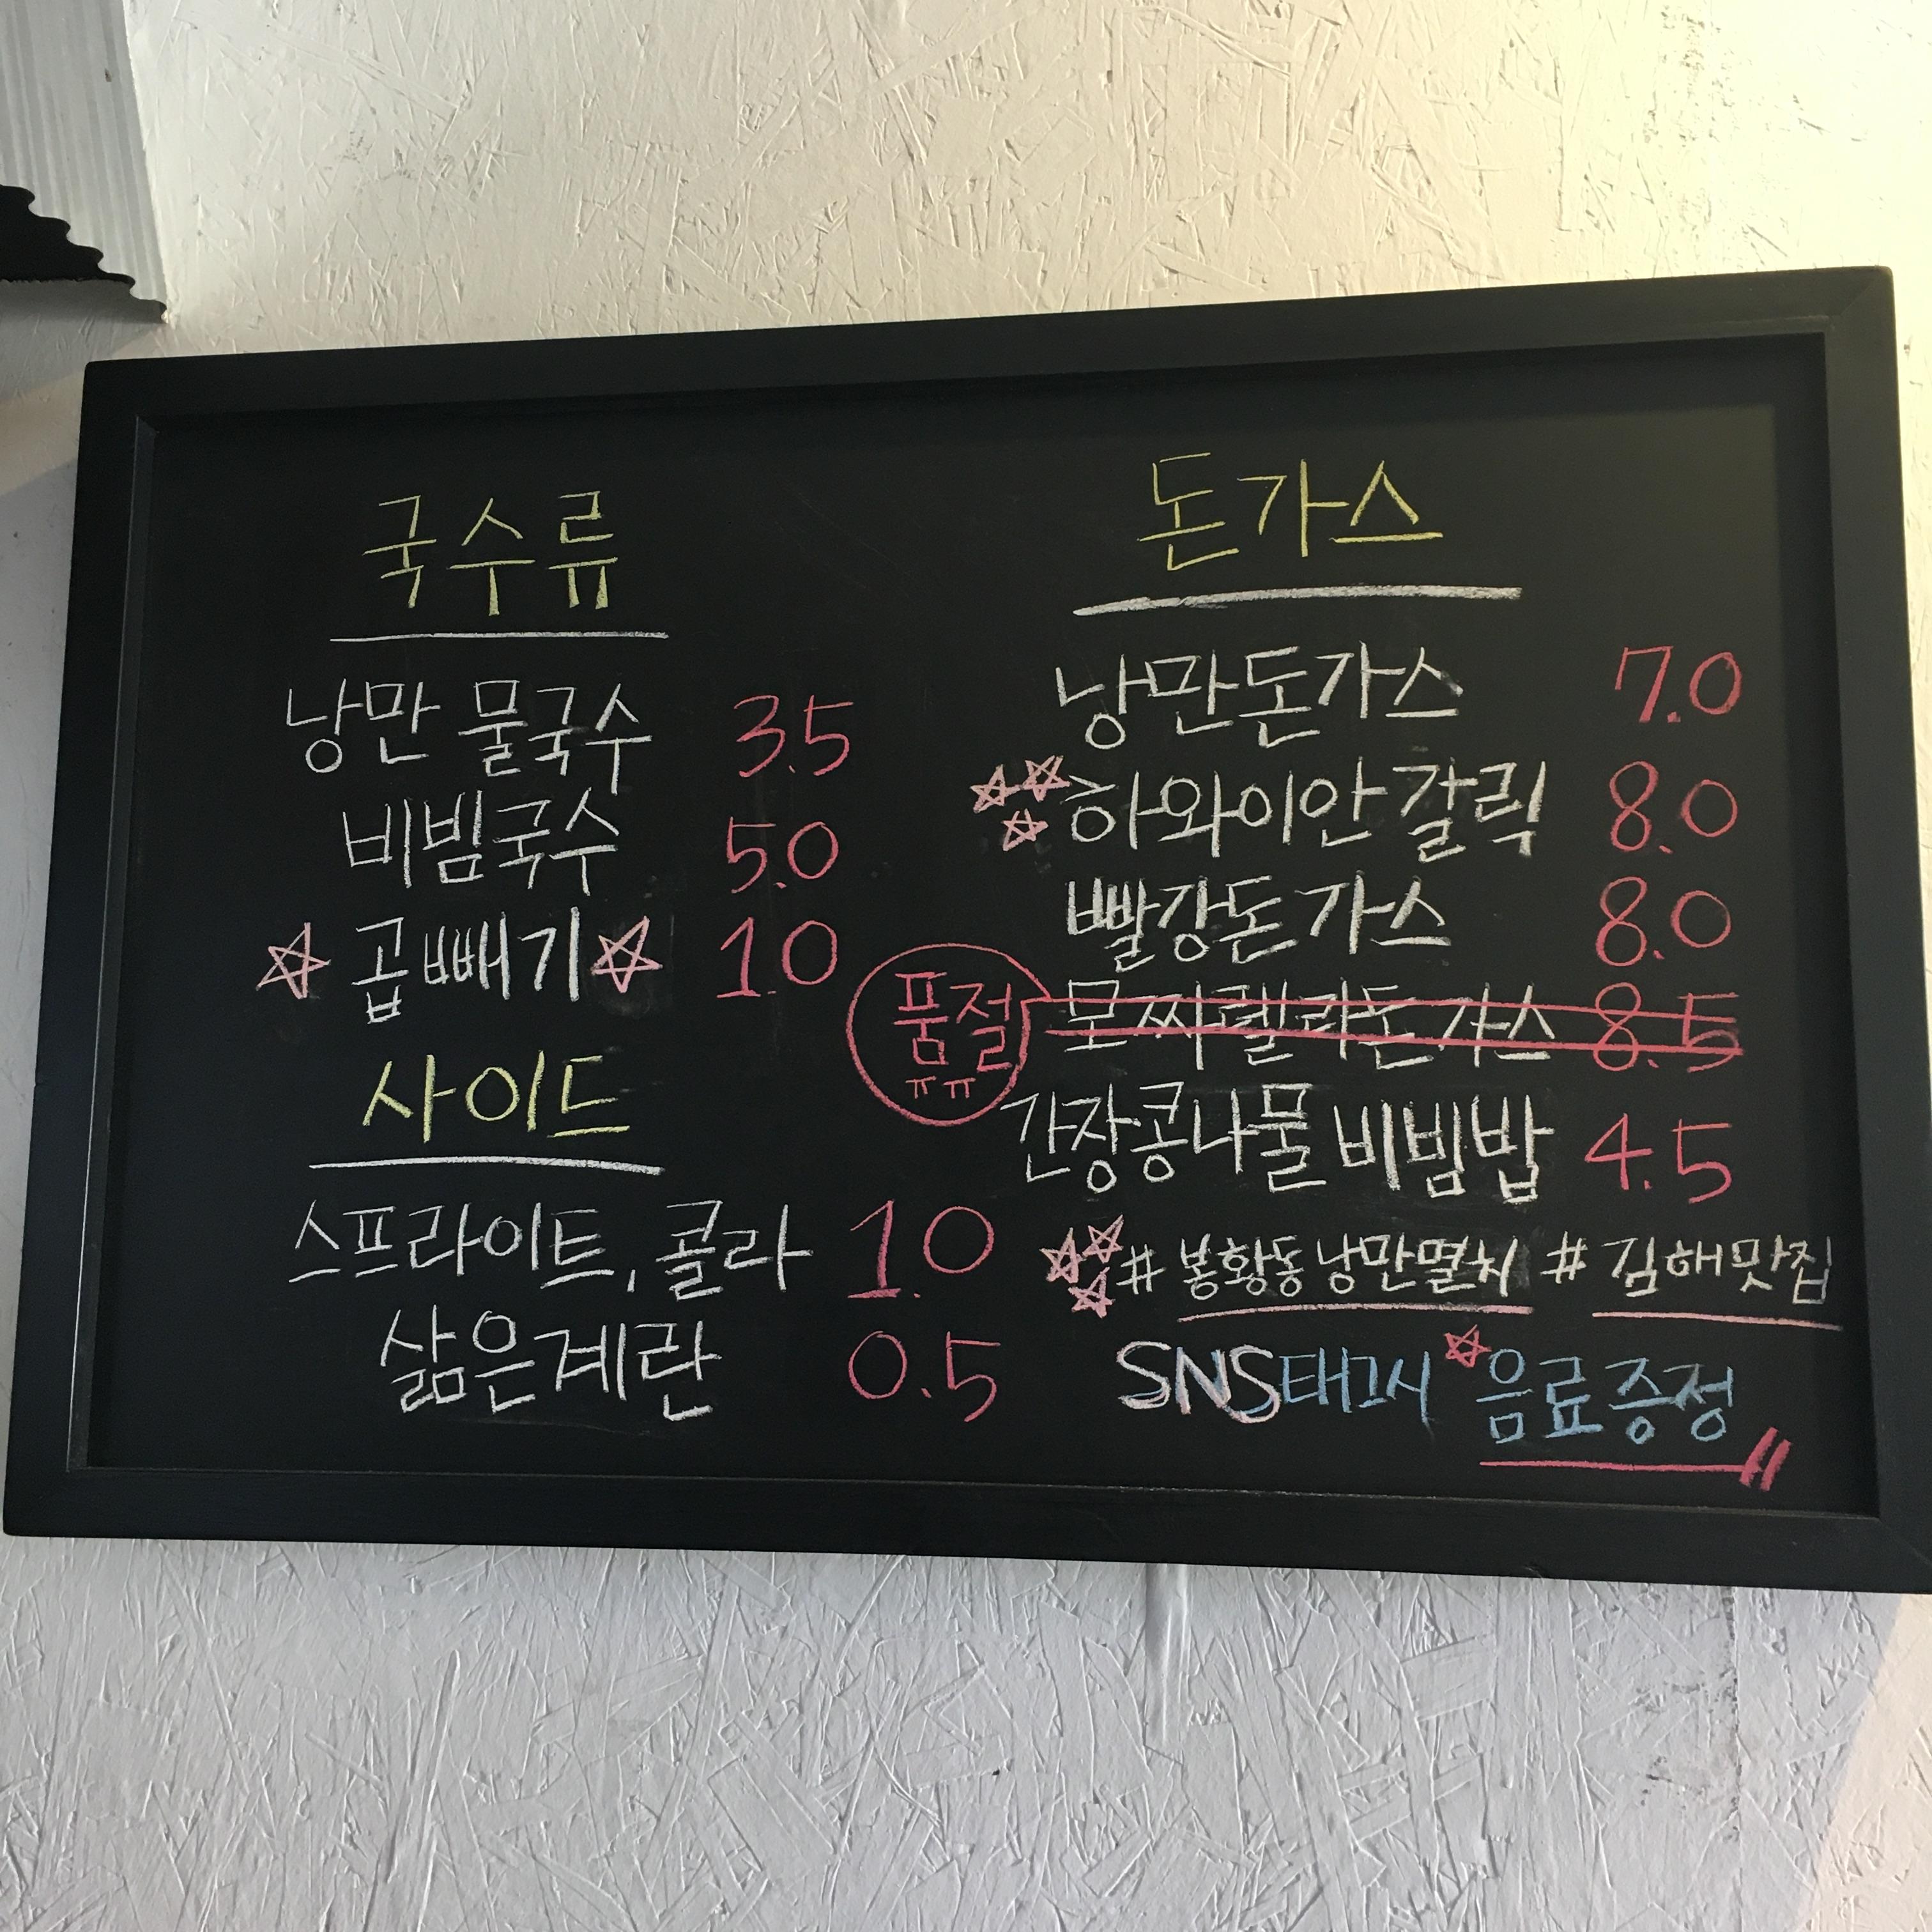 국수류
낭만 물국수 3.5
비빔국수 5.0
☆ 곱빼기 ☆ 1.0
사이드
스프라이트, 콜라 1.0
삶은계란 0.5
돈가스
낭만돈가스 7.0
☆☆☆ 하와이안 갈릭 8.0
빨강돈가스 8.0
품절 ㅠㅠ 모짜렐라돈가스 8.5
간장콩나물 비빔밥 4.5
☆☆☆ # 봉황동낭만멸치 # 김해맛집
SNS태그시 ☆음료증정〃